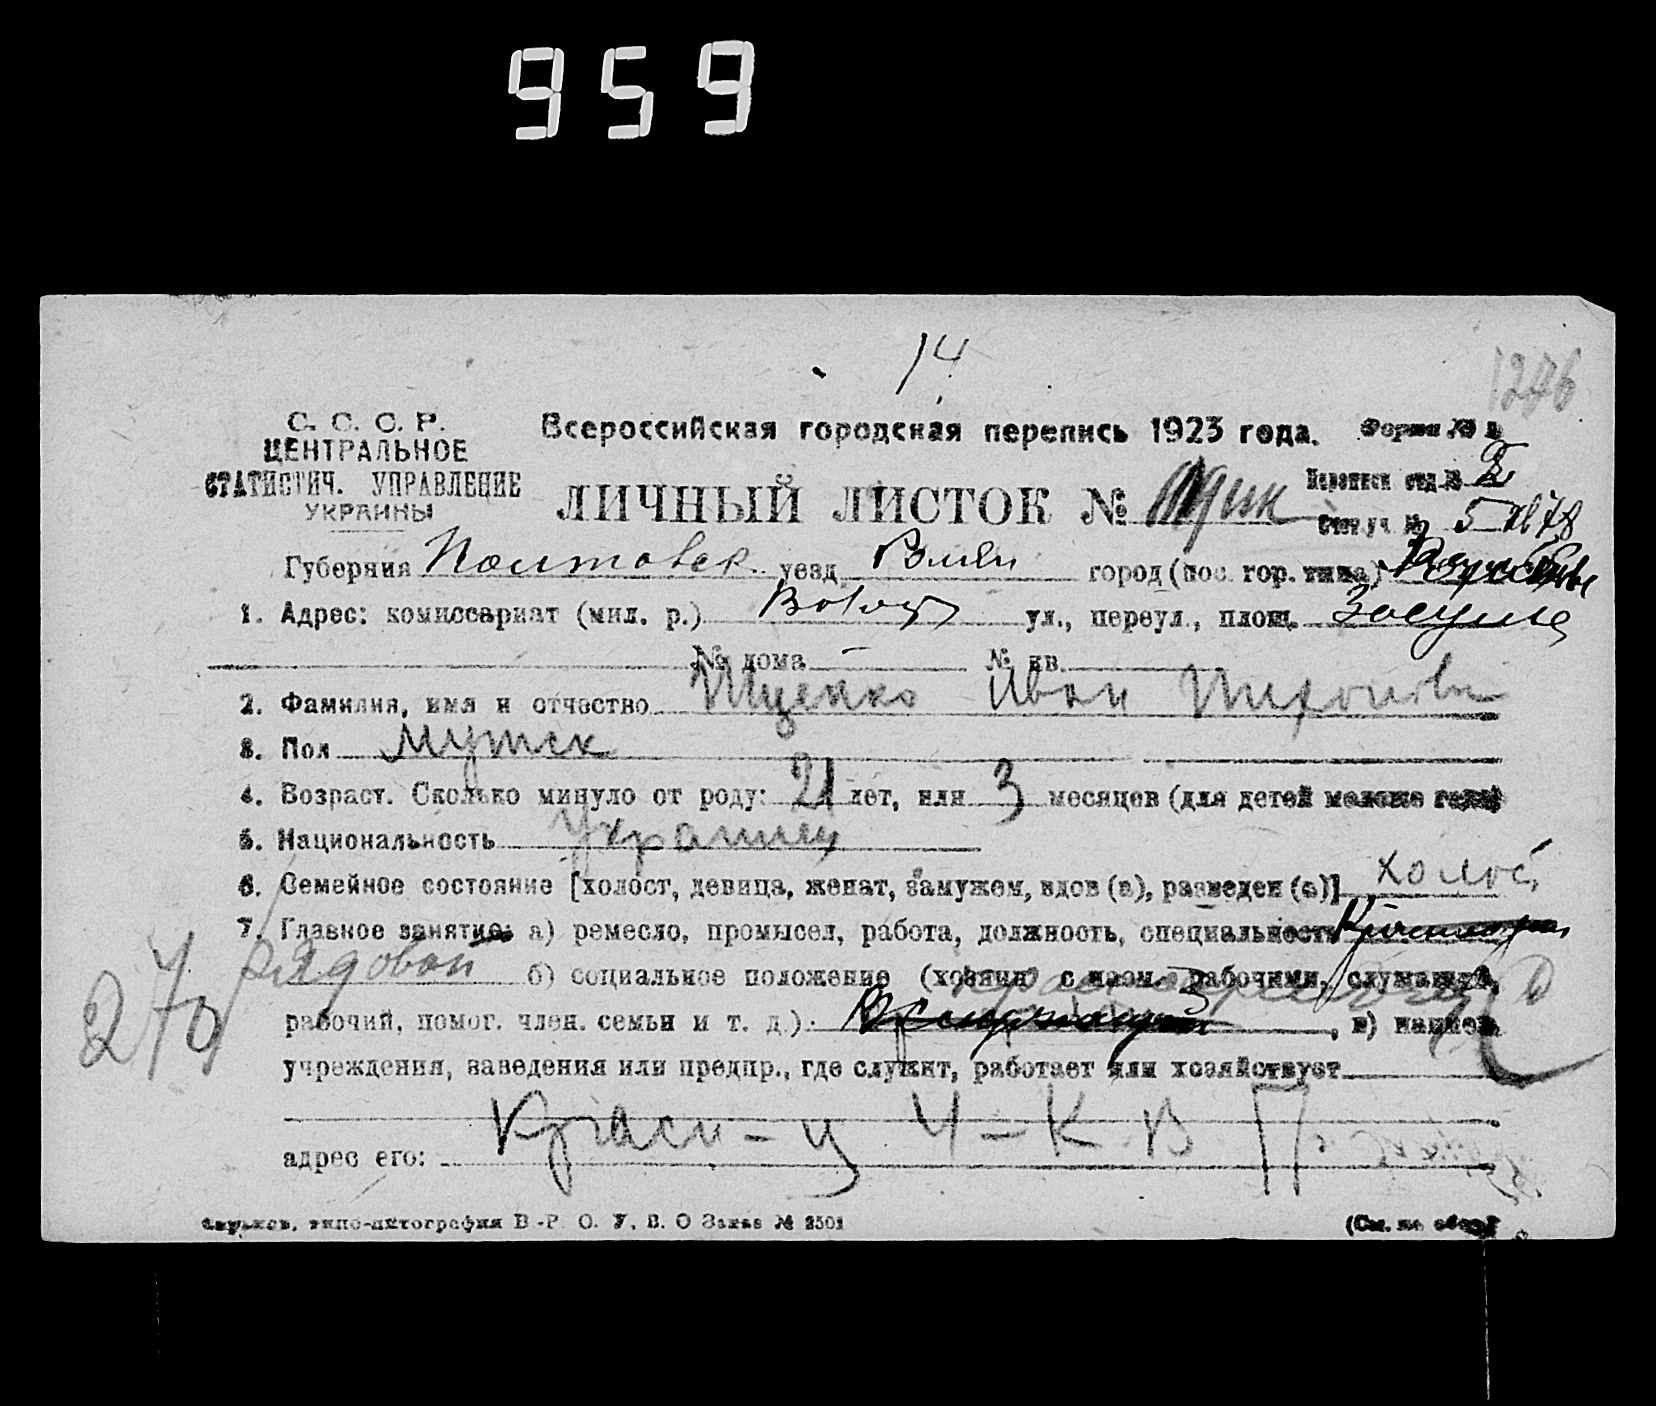 959
14
1276
С. С. С. Р.
ЦЕНТРАЛЬНОЕ
СТАТИСТИЧ. УПРАВЛЕНИЕ
УКРАИНЫ
Всероссийская городская перепись 1923 года. Форма №
ЛИЧНЫЙ ЛИСТОК №
Переписн отд. №
Счетн. уч. № 5
Губерния Полтавск уезд город (пос. гор. типа)
1. Адрес: комиссариат (мил. р.) ул., переул., площ.
№ дома — № кв.
2. Фамилия, имя и отчество Ищенко Иван Тихонови
3. Пол мужск
4. Возраст. Сколько минуло от роду: 21 лет, или 3 месяцев (для детей моложе года)
5. Национальность украинец
6. Семейное состояние [холост, девица, женат, замужем, вдов (а), разведен (а)] холос
7. Главное занятие: а) ремесло, промысел, работа, должность, специальность
рядовой б) социальное положение (хозяин с наем. рабочими, служащий,
рабочий, помог. член. семьи и т. д.) , в) наимен.
учреждения, заведения или предпр., где служит, работает или хозяйствует
270
Красн-ц Ч-К В П
адрес его:
Харьков, типо-литография В.-Р. О. У. В. О Заказ № 2501
(См. на обор.)